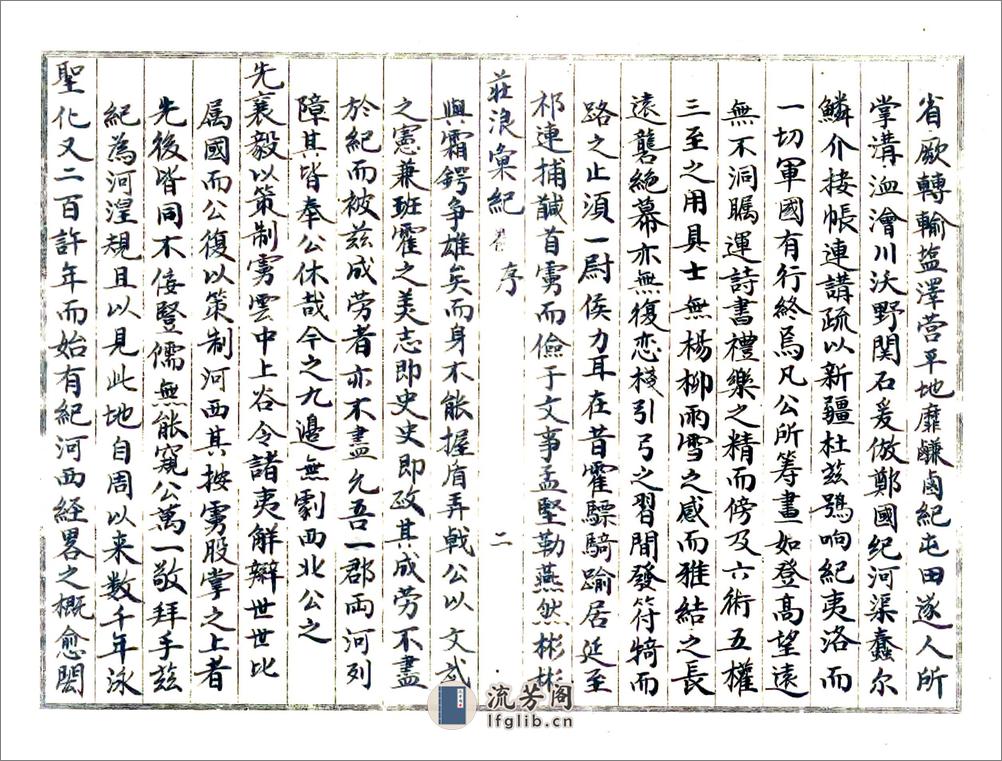 省厥轉輸塩澤营平地靡鹻鹵紀屯田遂人所
掌溝洫澮川沃野関石爰倣鄭國紀河渠蠢尔
鱗介接帳連講疏以新疆杜兹鴞响紀夷洛而
一切軍國有行終焉凡公所筹畫如登高望遠
無不洞矚運詩書禮樂之精而傍及六術五權
三至之用具士無楊柳雨雪之感而雅結之長
遠襲絶幕亦無復恋棧引弓之習間發符犄而
路之止須一尉侯力耳在昔霍驃騎踰居延至
祁連捕馘首虜而儉于文事孟堅勒燕然彬彬
莊浪彙紀 卷 序 二
與霜鍔争雄矣而身不能握盾弄戟公以文武
之憲兼班霍之美志即史史即政其成劳不盡
於紀而被兹成劳者亦不盡允吾一郡両河列
障其皆奉公休哉今之九邉無劇西北公之
先襄毅以策制雲中上谷令諸夷解辮世世比
属國而公復以策制河西其按虜股掌之上者
先後皆同不佞豎儒無能窺公萬一敬拜手兹
紀為河湟規且以見此地自周以来数千年泳
聖化又二百許年而始有紀河西经畧之概愈閎
流芳阁
lfglib.cn